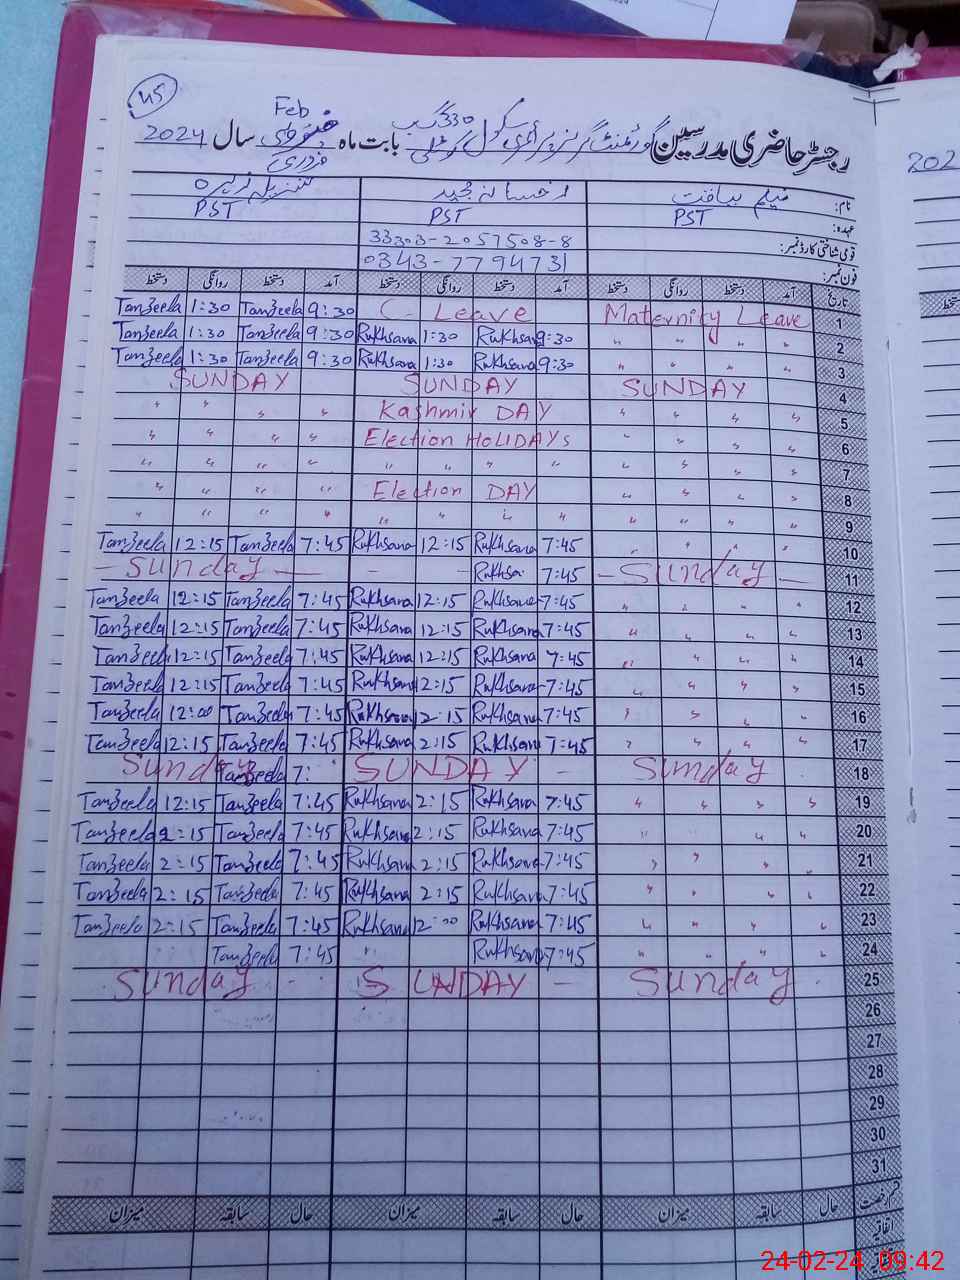 45
Feb
رجسٹر حاضری مدرسین گورنمنٹ گرلز پرائمری سکول 330 گ ب بابت ماہ فروری سال 2024
202
نام: نیلم PST
عہدہ: PST PST
قومی شناختی کارڈ نمبر: 33303-2057508-8
فون نمبر: 0343-7794731
تاریخ آمد دستخط روانگی دستخط آمد دستخط روانگی دستخط آمد دستخط روانگی دستخط
Tanzeela 1:30 Tanzeela 9:30 C. Leave Maternity Leave 1
Tanzeela 1:30 Tanzeela 9:30 Rukhsana 1:30 Rukhsana 9:30 " " " " 2
Tanzeela 1:30 Tanzeela 9:30 Rukhsana 1:30 Rukhsana 9:30 " " " " 3
SUNDAY SUNDAY SUNDAY 4
" " " " Kashmir DAY " " " " 5
" " " " Election HOLIDAYs " " " 6
" " " " " " " " " " " " 7
" " " Election DAY " " " " 8
" " " " " " " " " " " 9
Tanzeela 12:15 Tanzeela 7:45 Rukhsana 12:15 Rukhsana 7:45 " " " " 10
— Sunday — - - Rukhsa 7:45 — Sunday — 11
Tanzeela 12:15 Tanzeela 7:45 Rukhsana 12:15 Rukhsana 7:45 " " " " 12
Tanzeela 12:15 Tanzeela 7:45 Rukhsana 12:15 Rukhsana 7:45 " " " " 13
Tanzeela 12:15 Tanzeela 7:45 Rukhsana 12:15 Rukhsana 7:45 " " " " 14
Tanzeela 12:15 Tanzeela 7:45 Rukhsana 12:15 Rukhsana 7:45 " " " " 15
Tanzeela 12:00 Tanzeela 7:45 Rukhsana 12:15 Rukhsana 7:45 " " " " 16
Tanzeela 12:15 Tanzeela 7:45 Rukhsana 2:15 Rukhsana 7:45 " " " " 17
Sunday Tanzeela 7: SUNDAY — Sunday 18
Tanzeela 12:15 Tanzeela 7:45 Rukhsana 2:15 Rukhsana 7:45 " " " " 19
Tanzeela 2:15 Tanzeela 7:45 Rukhsana 2:15 Rukhsana 7:45 " " " 20
Tanzeela 2:15 Tanzeela 7:45 Rukhsana 2:15 Rukhsana 7:45 " " " " 21
Tanzeela 2:15 Tanzeela 7:45 Rukhsana 2:15 Rukhsana 7:45 " " " " 22
Tanzeela 2:15 Tanzeela 7:45 Rukhsana 12:00 Rukhsana 7:45 " " " " 23
Tanzeela 7:45 Rukhsana 7:45 " " " " 24
Sunday - SUNDAY — Sunday 25
26
27
28
29
30
31
قسم رخصت حال سابقہ میزان حال سابقہ میزان حال سابقہ میزان
اتفاقیہ
24-02-24 09:42